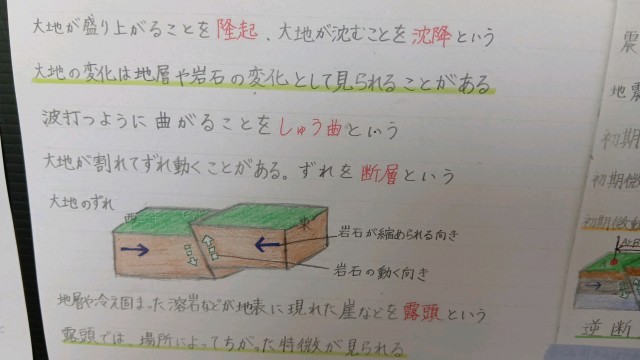 大地が盛り上がることを隆起、大地が沈むことを沈降という
大地の変化は地層や岩石の変化として見られることがある
波打つように曲がることをしゅう曲という
大地が割れてずれ動くことがある。ずれを断層という
大地のずれ
西
東
岩石が縮められる向き
岩石の動く向き
地層や冷え固まった溶岩などが地表に現れた崖などを露頭という
露頭では、場所によってちがった特徴が見られる
震
地震
初期
初期微
初期微動
逆断